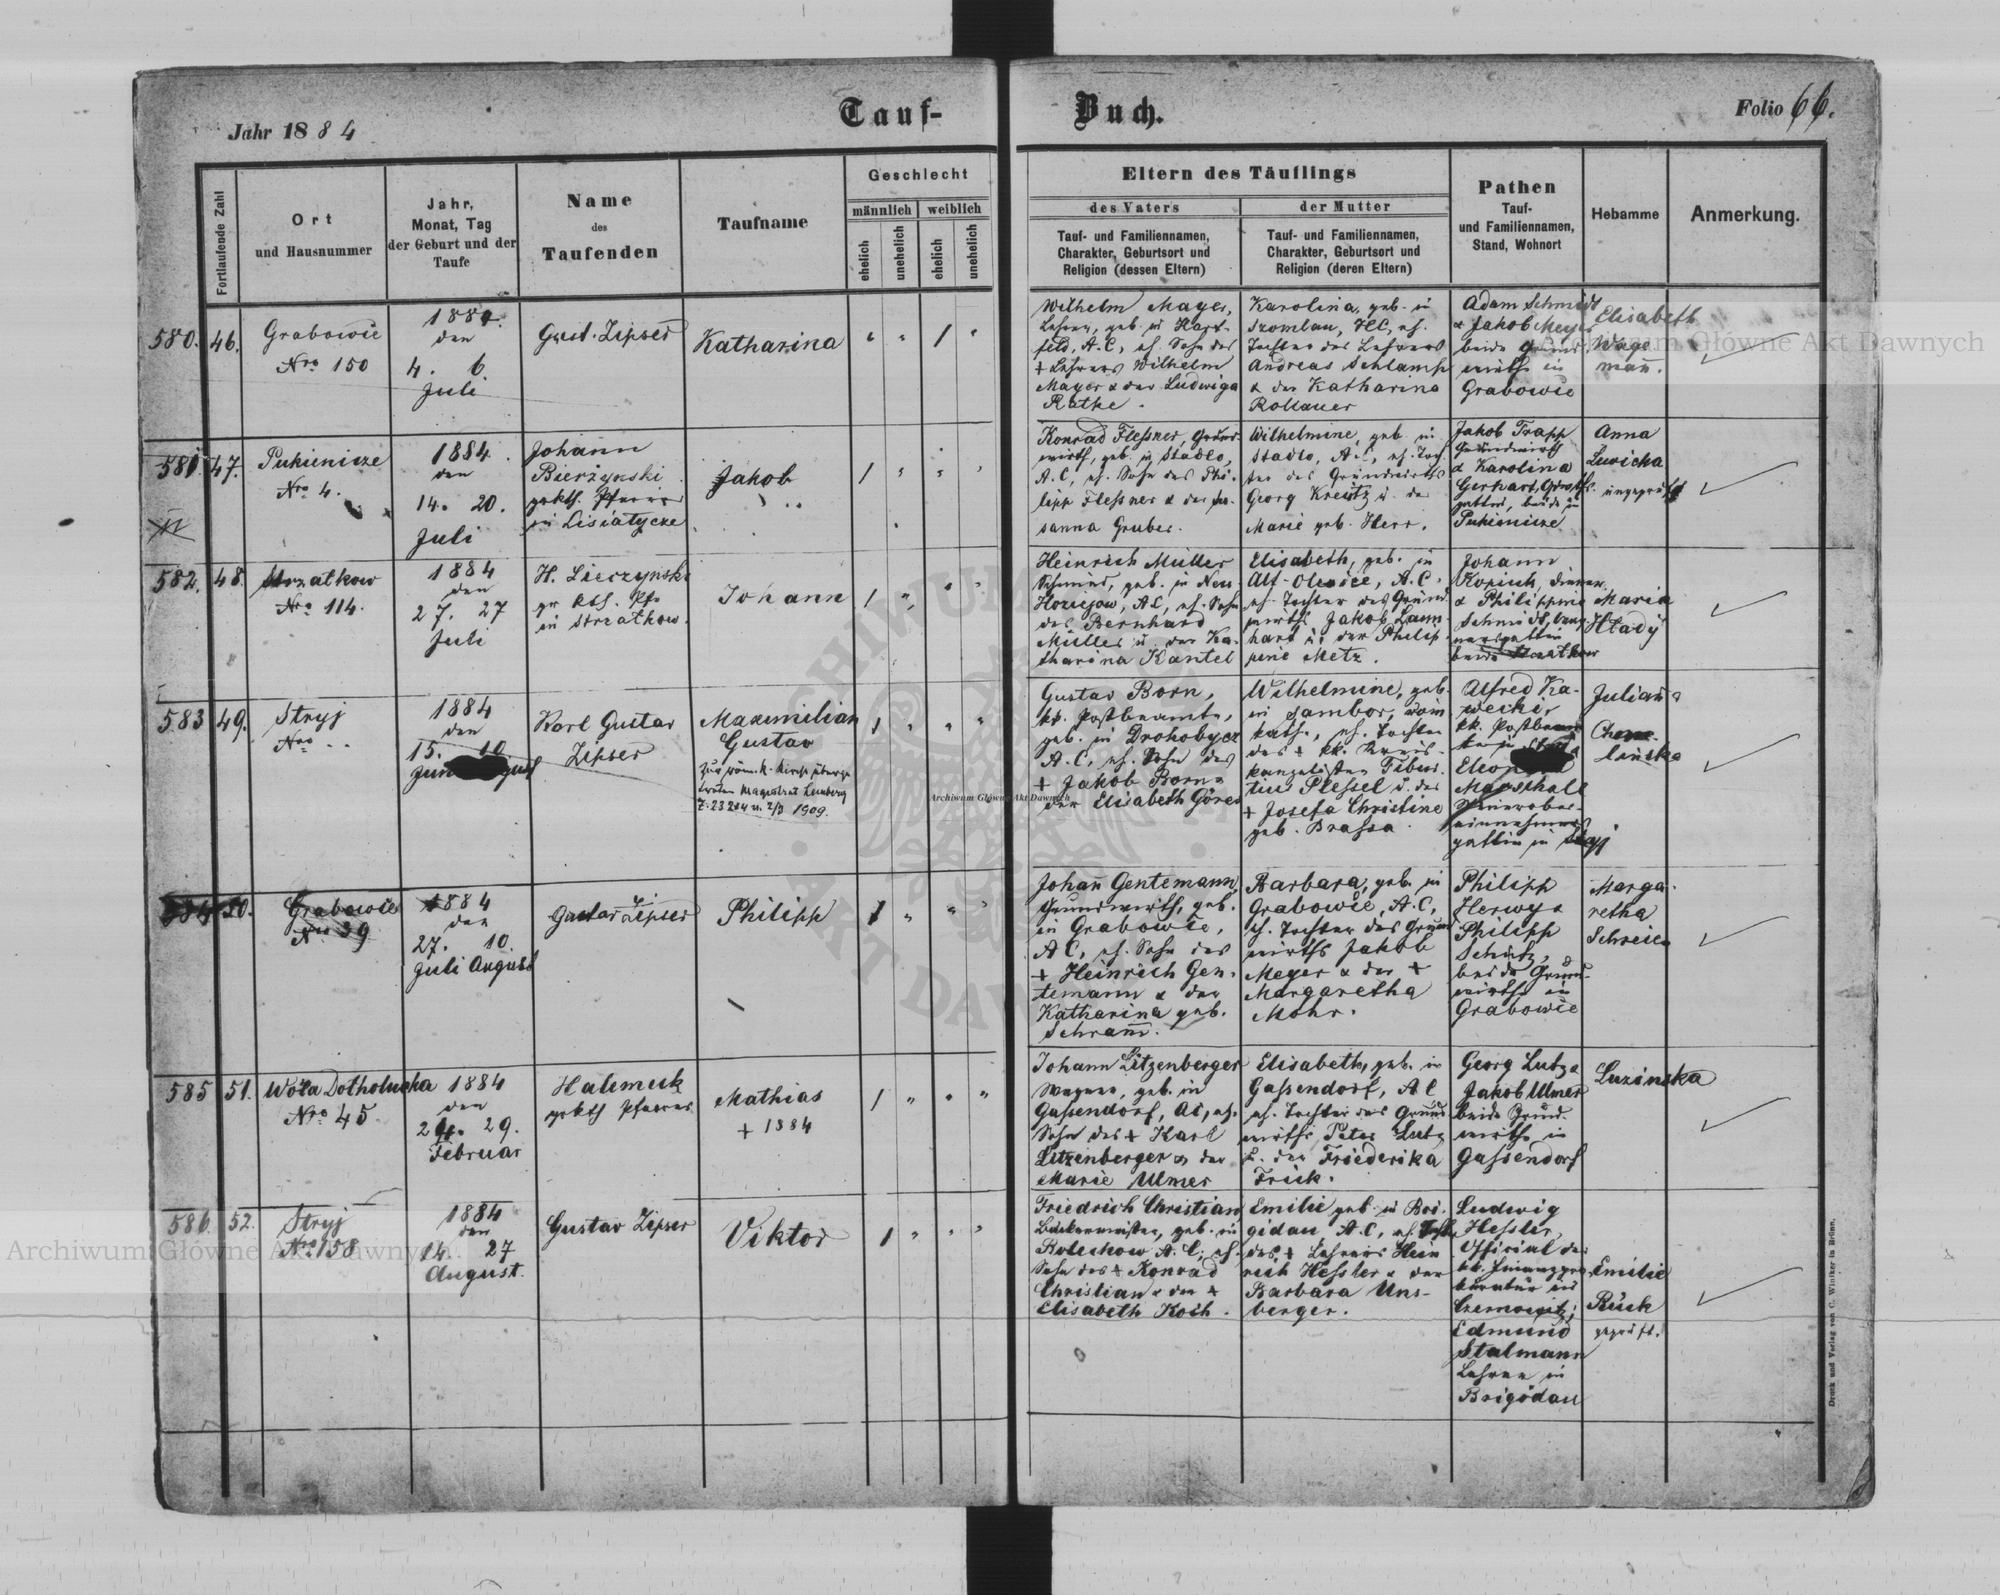 Tauf-
Buch.
Jahr 1884
Folio 66.
Fortlaufende Zahl
Ort
und Hausnummer
Jahr,
Monat, Tag
der Geburt und der
Taufe
Name
des
Taufenden
Taufname
Geschlecht
männlich
weiblich
ehelich
unehelich
ehelich
unehelich
Eltern des Täuflings
des Vaters
Tauf- und Familiennamen,
Charakter, Geburtsort und
Religion (dessen Eltern)
der Mutter
Tauf- und Familiennamen,
Charakter, Geburtsort und
Religion (deren Eltern)
Pathen
Tauf-
und Familiennamen,
Stand, Wohnort
Hebamme
Anmerkung.
580. 46.
Grabowie
Nro 150
1884.
den
4. 6
Juli
Gust. Zipser
Katharina
" " 1 "
Wilhelm Mayer,
Lehrer, geb. in
feld, A.C, eh. Sohn des
+ Lehrers Wilhelm
Mayer & der Ludwiga
Rathe.
Karolina, geb. in
Szomlau, HC, eh.
Tochter des Lehrers
Andreas Schlamp
& der Katharina
Rollauer
Adam Schmidt
& Jakob Meyer
beide Grund-
wirthe in
Grabowie
Elisabeth
Wage
mañ.
581. 47.
Pukienicze
Nro 4.
1884.
den
14. 20.
Juli
Johann
Bierżynski
gr kth. Pfarrer
in Lisiatycze
Jakob
1 " " "
Konrad Flessner, Grund-
wirth, geb. in Stadlo,
A.C, eh. Sohn des Phi-
lipp Flessner & der Su-
sanna Gruber.
Wilhelmine, geb. in
Stadlo, A.C, eh. Toch-
ter des Grundwirths
Georg Kreutz u. der
Marie geb. Herr.
Jakob Trapp
Grundwirth
& Karolina
Gerhart, Grdwths
gattin, beide in
Pukienicze
Anna
Lewicka
ungeprüft
582. 48.
Strzalkow
Nro 114.
1884
den
27. 27
Juli
H. Lierzynski
gr kth. Pfr
in Strzalkow.
Johann
1 " " "
Heinrich Müller
Schmied, geb. in Neu-
AC, eh. Sohn
des Bernhard
Müller u. der Ka-
tharina Kantel
Elisabeth, geb. in
Alt-Olesice, A.C.
eh. Tochter des Grund-
wirths Jakob Lam-
hart u. der Philip-
pine Metz.
Johann
Kopisch, Diener,
& Philippine
Schmidt,
gattin
beide Strzalkow
Maria
Hladij
583 49.
Stryj
Nro ..
1884
den
15. 10
Karl Gustav
Zipser
Maximilian
Gustav
zur röm. k. Kirche überge-
treten Magistrat Lemberg
Z. 23214 u. 2/3 1909.
1 " " "
Gustav Born,
kk. Postbeamte,
geb. in Drohobycz
A.C, eh. Sohn des
+ Jakob Born &
der Elisabeth Göres
Wilhelmine, geb.
in Sambor, röm
kath., eh. Tochter
des + kk. Kreis-
kanzelisten Tibur-
tius Plessel u. der
+ Josefa Christine
geb. Brassa.
Alfred Ka-
wecki,
kk. Postbeam-
Marschall
Steuerober-
einnehmers
gattin in Stryj
Julianna
584 50.
Grabowie
Nro 39
1884
den
27. 10.
Juli August
Gustav Zipser
Philipp
1 " " "
Johañ Gentemann,
Grundwirth, geb.
in Grabowie,
AC, eh. Sohn des
+ Heinrich Gen-
temann & der
Katharina geb.
Schrañ.
Barbara, geb. in
Grabowie, A.C,
eh. Tochter des Grund-
wirths Jakob
Meyer & der +
Margaretha
Mohr.
Philipp
Herwy &
Philipp
Schatz,
beide Grund-
wirthe in
Grabowie
Marga-
retha
Schreier
585 51.
Wola Dolholucka
Nro 45.
1884
den
24. 29.
Februar
Halemeik
gr kth Pfarrer
Mathias
+ 1884
1 " " "
Johann Litzenberger
Wagner, geb. in
Gassendorf, AC, eh.
Sohn des + Karl
Litzenberger & der
Marie Ulmer
Elisabeth, geb. in
Gassendorf, AC
eh. Tochter des Grund
wirths Peter Lutz
u. der Friederika
Frick.
Georg Lutz &
Jakob Ulmer
beide Grund-
wirthe in
Gassendorf
Luzinska
586. 52.
Stryj
Nro 158
1884
den
14. 27
August.
Gustav Zipser
Viktor
1 " " "
Friedrich Christian
Bäckermeister, geb. in
Bolechow A.C; eh.
Sohn des + Konrad
Christian & der +
Elisabeth Koch.
Emilie geb. in Bri-
gidau, A.C, eh. Tochter
des + Lehrers Hein
rich Hessler & der
Barbara Uns-
berger.
Ludwig
Hessler,
Official der
kk. Finanzpro-
kuratur in
Czernowitz;
Edmund
Stalmann
Lehrer in
Brigidau
Emilie
Rück
geprüft.
Druck und Verlag von C. Winiker in Brünn.
Archiwum Główne Akt Dawnych
Archiwum Główne Akt Dawnych
Archiwum Główne Akt Dawnych
ARCHIWUM GŁÓWNE AKT DAWNYCH